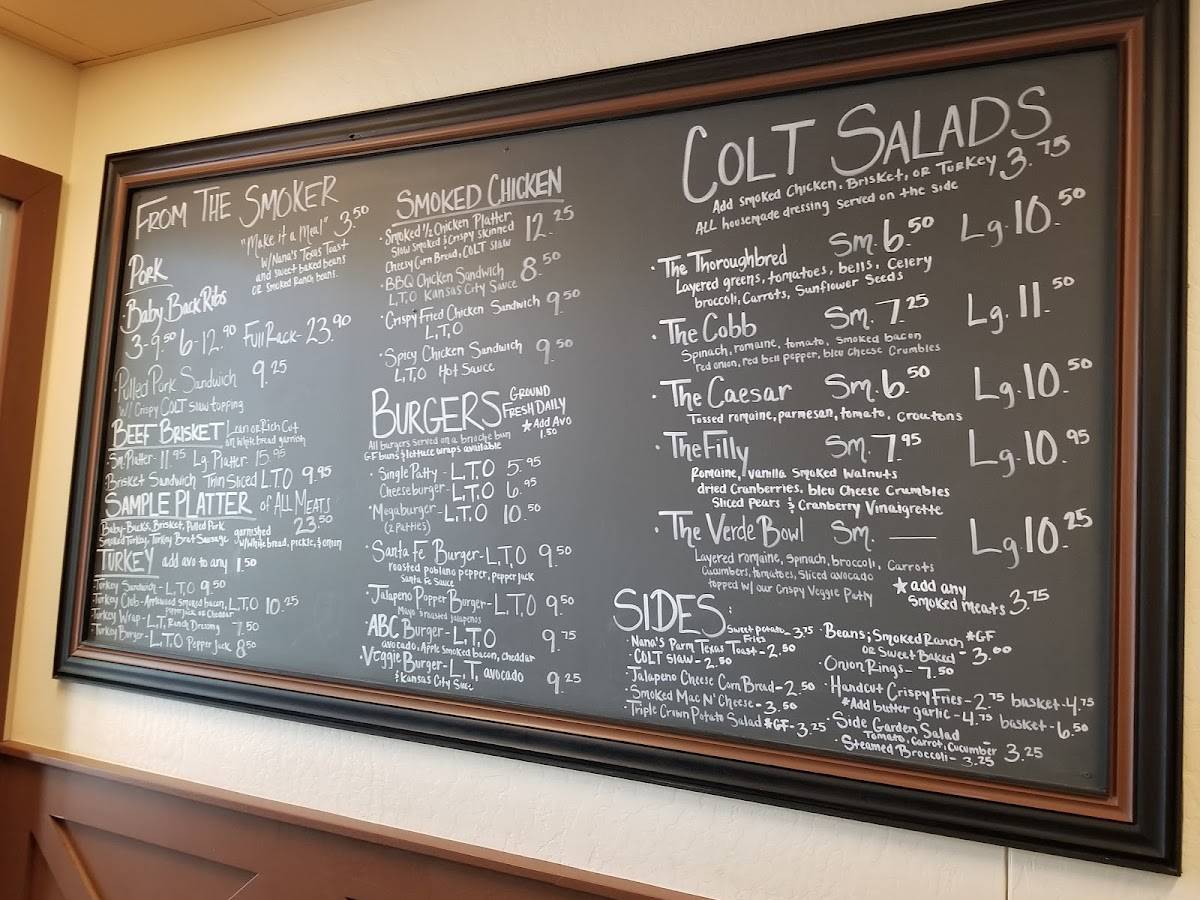 FROM THE SMOKER
"Make it a Meal" 3.50
w/Nana's Texas Toast
and sweet baked beans
OR Smoked Ranch beans.
PORK
·Baby Back Ribs
3-9.50 6-12.90 Full Rack-23.90
·Pulled Pork Sandwich 9.25
w/ Crispy COLT Slaw topping
BEEF BRISKET Lean or Rich Cut
on White bread garnish
·Sm. Platter- 11.95 Lg. Platter- 15.95
·Brisket Sandwich Thin Sliced L.T.O 9.95
SAMPLE PLATTER of ALL MEATS
23.50
Baby-Backs, Brisket, Pulled Pork
Smoked Turkey, Turkey Brat Sausage
garnished
w/White bread, pickle, & onion
TURKEY add avo to any 1.50
·Turkey Sandwich - L.T.O 9.50
·Turkey Club - Applewood smoked bacon, L.T.O 10.25
Pepper jack or Cheddar
·Turkey Wrap - L.T, Ranch Dressing 7.50
·Turkey Burger - L.T.O Pepper Jack 8.50
SMOKED CHICKEN
·Smoked 1/2 Chicken Platter 12.25
Slow smoked & Crispy skinned
Cheesy Corn Bread, COLT Slaw
·BBQ Chicken Sandwich 8.50
L.T.O Kansas City Sauce
·Crispy Fried Chicken Sandwich 9.50
L.T.O
·Spicy Chicken Sandwich 9.50
L.T.O Hot Sauce
BURGERS GROUND
FRESH DAILY
★ Add Avo
1.50
All burgers served on a brioche bun
GF buns & lettuce wraps available
·Single Patty - L.T.O 5.95
Cheeseburger - L.T.O 6.95
·Megaburger - L.T.O 10.50
(2 Patties)
·Santa Fe Burger - L.T.O 9.50
roasted poblano pepper, pepper jack
Santa Fe Sauce
·Jalapeno Popper Burger - L.T.O 9.50
Mayo & roasted jalapenos
·ABC Burger - L.T.O 9.75
avocado, Apple Smoked bacon, cheddar
·Veggie Burger - L.T, avocado 9.25
& Kansas City Sauce
COLT SALADS
Add smoked Chicken, Brisket, OR Turkey 3.75
ALL housemade dressing served on the side
·The Thoroughbred Sm. 6.50 Lg. 10.50
Layered greens, tomatoes, bells, Celery
broccoli, Carrots, Sunflower Seeds
·The Cobb Sm. 7.25 Lg. 11.50
Spinach, romaine, tomato, smoked bacon
red onion, red bell pepper, bleu Cheese Crumbles
·The Caesar Sm. 6.50 Lg. 10.50
Tossed romaine, parmesan, tomato, Croutons
·The Filly Sm. 7.95 Lg. 10.95
Romaine, vanilla smoked Walnuts
dried Cranberries, bleu Cheese Crumbles
Sliced Pears & Cranberry Vinaigrette
·The Verde Bowl Sm. — Lg. 10.25
Layered romaine, Spinach, broccoli, Carrots
Cucumbers, tomatoes, Sliced avocado
topped w/ our Crispy Veggie Patty
★ add any
Smoked meats 3.75
SIDES:
Sweet potato Fries - 3.75
·Nana's Parm Texas Toast - 2.50
·COLT Slaw - 2.50
Jalapeno Cheese Corn Bread - 2.50
·Smoked Mac N' Cheese - 3.50
·Triple Crown Potato Salad *GF - 3.25
·Beans; Smoked Ranch *GF
OR Sweet Baked - 3.00
·Onion Rings - 7.50
·Handcut Crispy Fries - 2.75 basket - 4.75
*Add butter garlic - 4.75 basket - 6.50
·Side Garden Salad
Tomato, Carrot, Cucumber 3.25
·Steamed Broccoli - 3.25